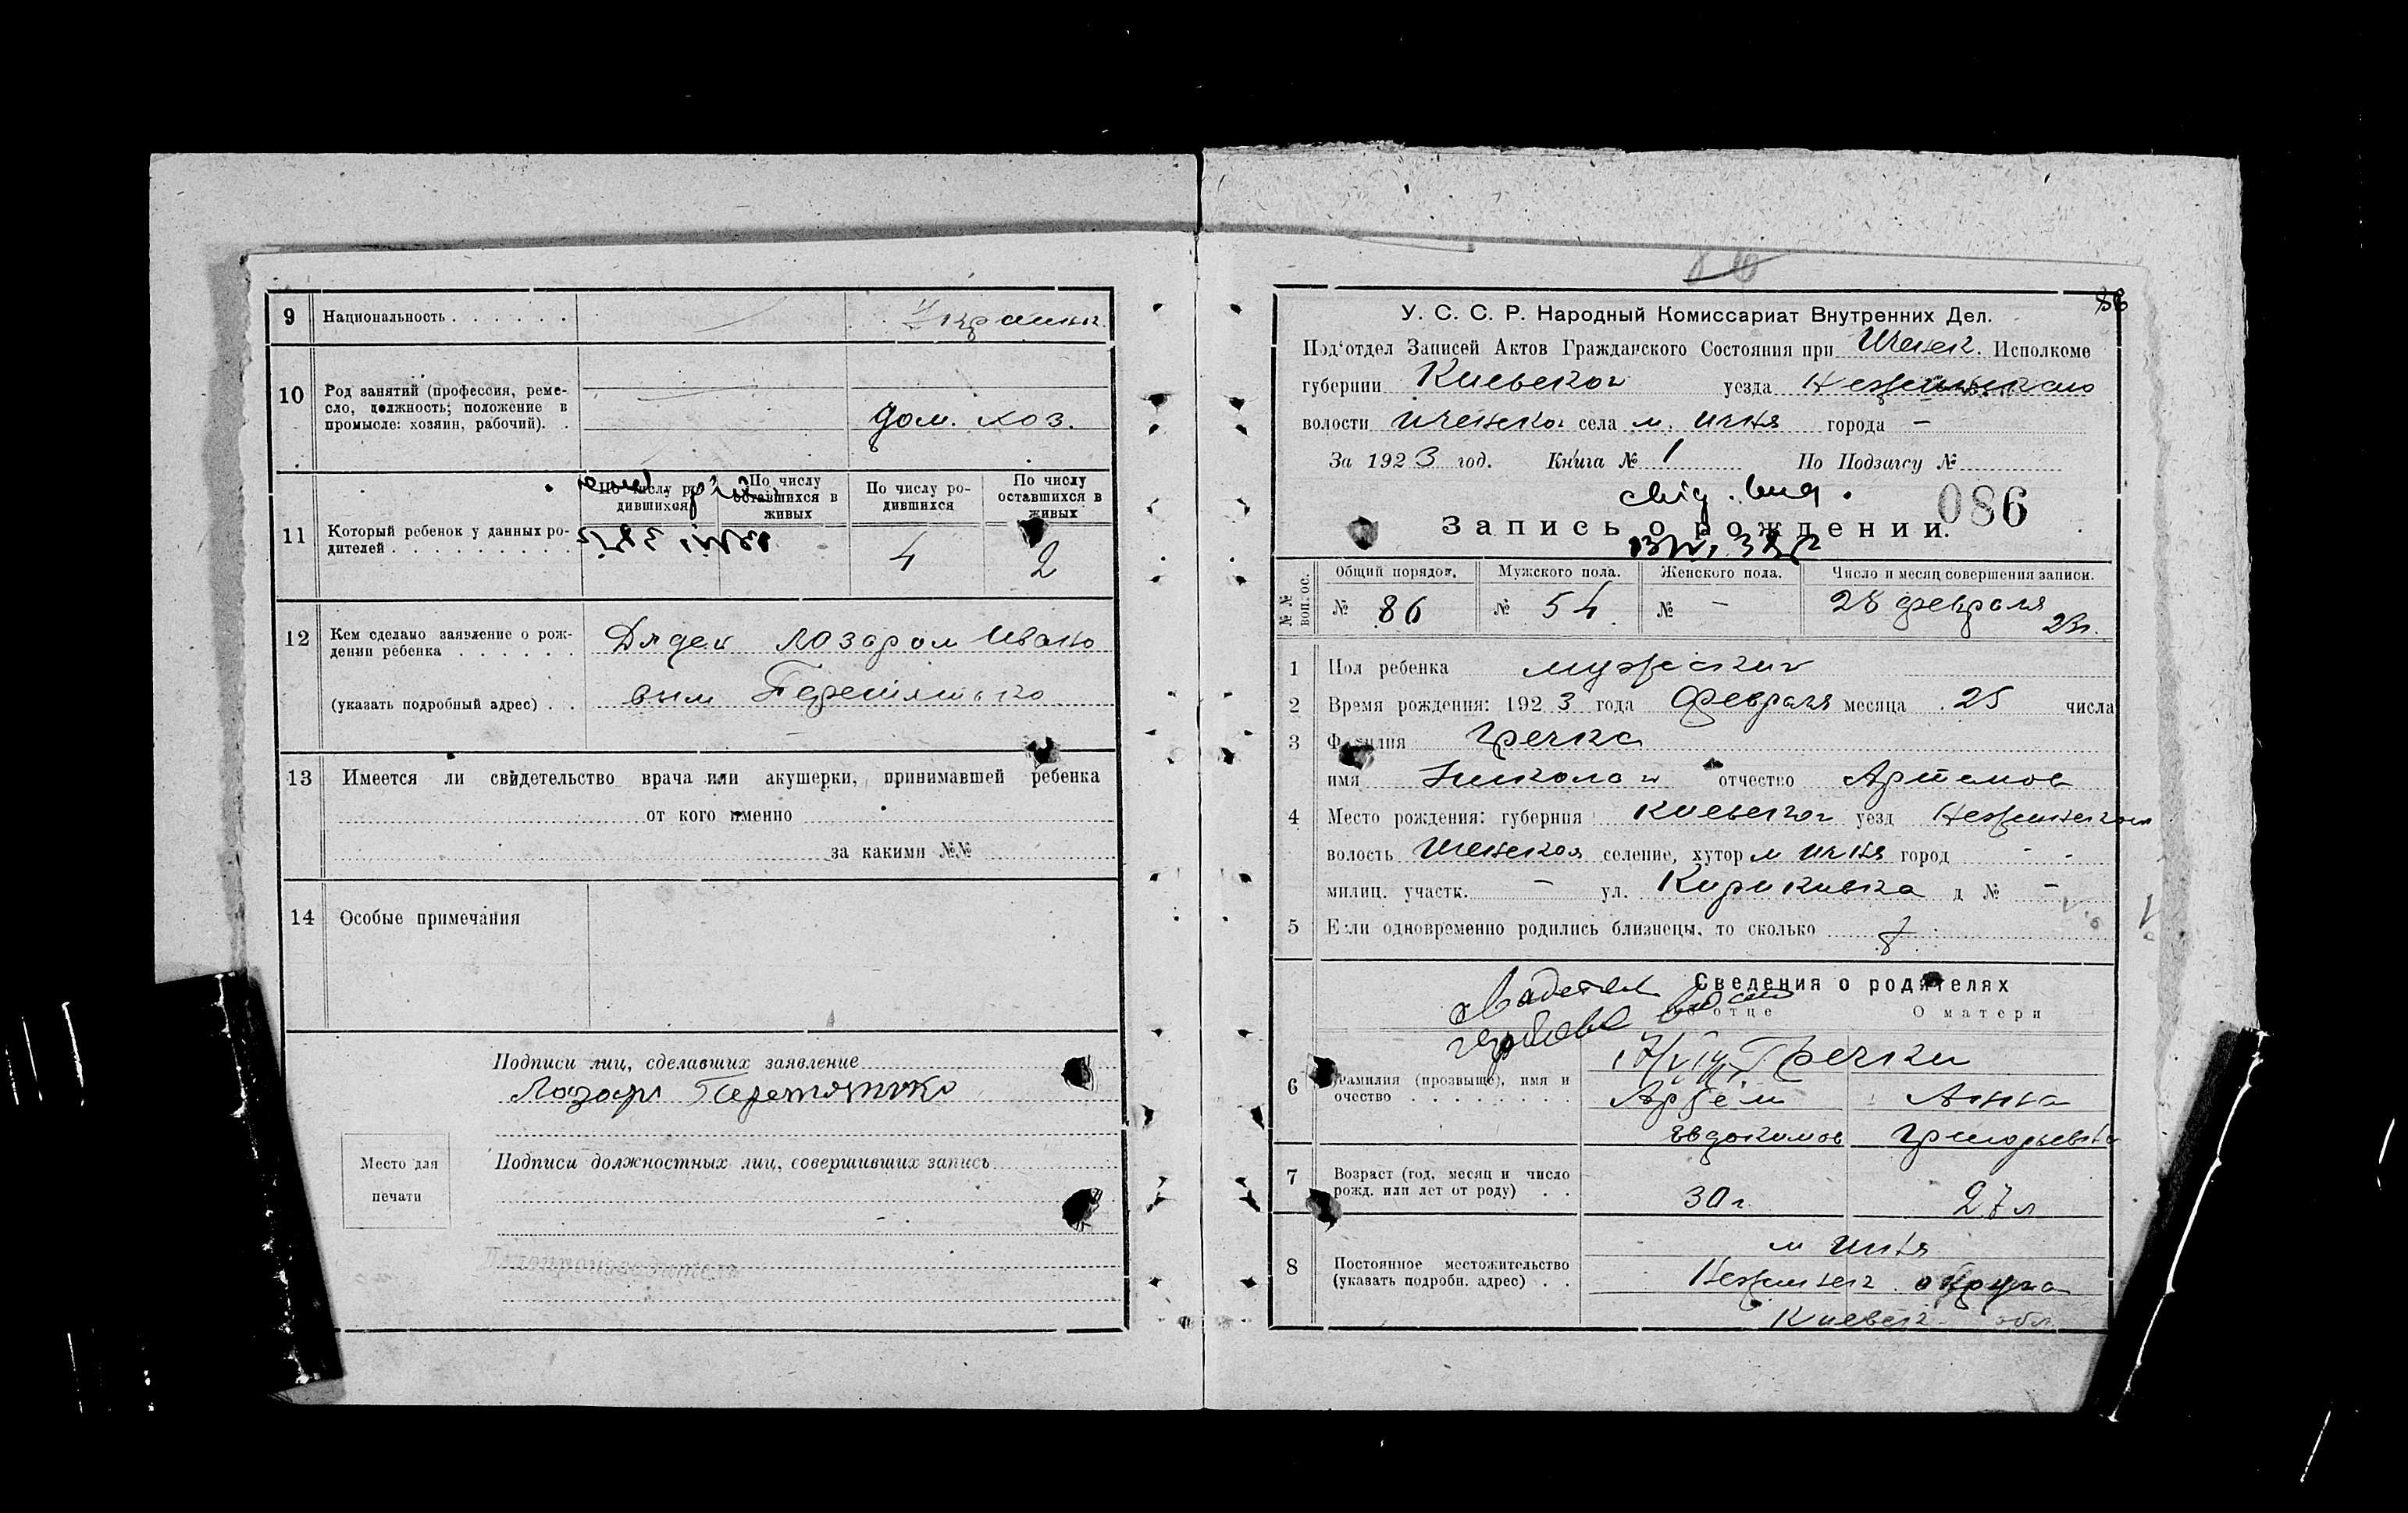 9 Национальность . . . . . .
10 Род занятий (профессия, реме-
сло, должность; положение в
промысле: хозяин, рабочий). .
дом. хоз.
11 Который ребенок у данных ро-
дителей . . . . . . . . . .
По числу ро-
дившихся
По числу
оставшихся в
живых
По числу ро-
дившихся
По числу
оставшихся в
живых
4 2
12 Кем сделано заявление о рож-
дении ребенка . . . . . .
(указать подробный адрес) . .
Дядей Лазаром Ивано
вым Перетятько
13 Имеется ли свидетельство врача или акушерки, принимавшей ребенка
от кого именно
за какими №№
14 Особые примечания
Подписи лиц, сделавших заявление
Лазарь Перетятько
Место для
печати
Подписи должностных лиц, совершивших запись
Делопроизводитель
86
86
У. С. С. Р. Народный Комиссариат Внутренних Дел.
Под'отдел Записей Актов Гражданского Состояния при Иченск. Исполкоме
губернии Киевской уезда Неженского
волости Иченской села м. Ичня города –
За 1923 год. Книга № 1 По Подзагсу №
086
Запись о рождении.
№№ вопрос.
Общий порядок. Мужского пола. Женского пола. Число и месяц совершения записи.
№ 86 № 54 № – 28 февраля
23г.
1 Пол ребенка мужский
2 Время рождения: 1923 года Февраля месяца 25 числа
3 Фамилия Гречка
имя Николай отчество Артемов
4 Место рождения: губерния Киевской уезд Неженский
волость Иченская селение, хутор м Ичня город - -
милиц. участк. – ул. Кириковка д № –
5 Если одновременно родились близнецы, то сколько
Сведения о родителях
Об отце О матери
6 Фамилия (прозвыще), имя и
очество . . . . . . . .
Гречки
Артем Анна
Евдокимов Григорьевна
7 Возраст (год, месяц и число
рожд. или лет от роду) . .
30 г. 27 л
8 Постоянное местожительство
(указать подробн. адрес) . .
м Ичня
Неженск. округа
Киевск. обл.